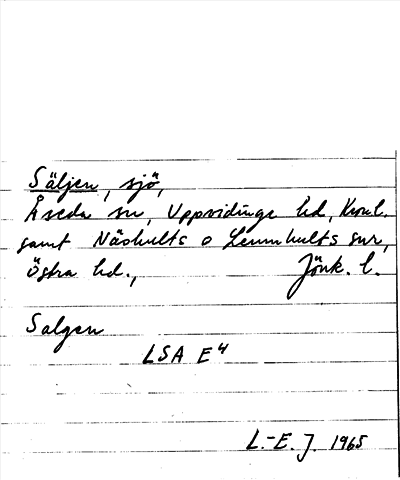 Säljen, sjö,
Åseda sn, Uppvidinge hd, Kron. l.
samt Näshults o Lemnhults snr,
Östra hd., Jönk. l.
Salgen
LSA E4
L.-E. J. 1965